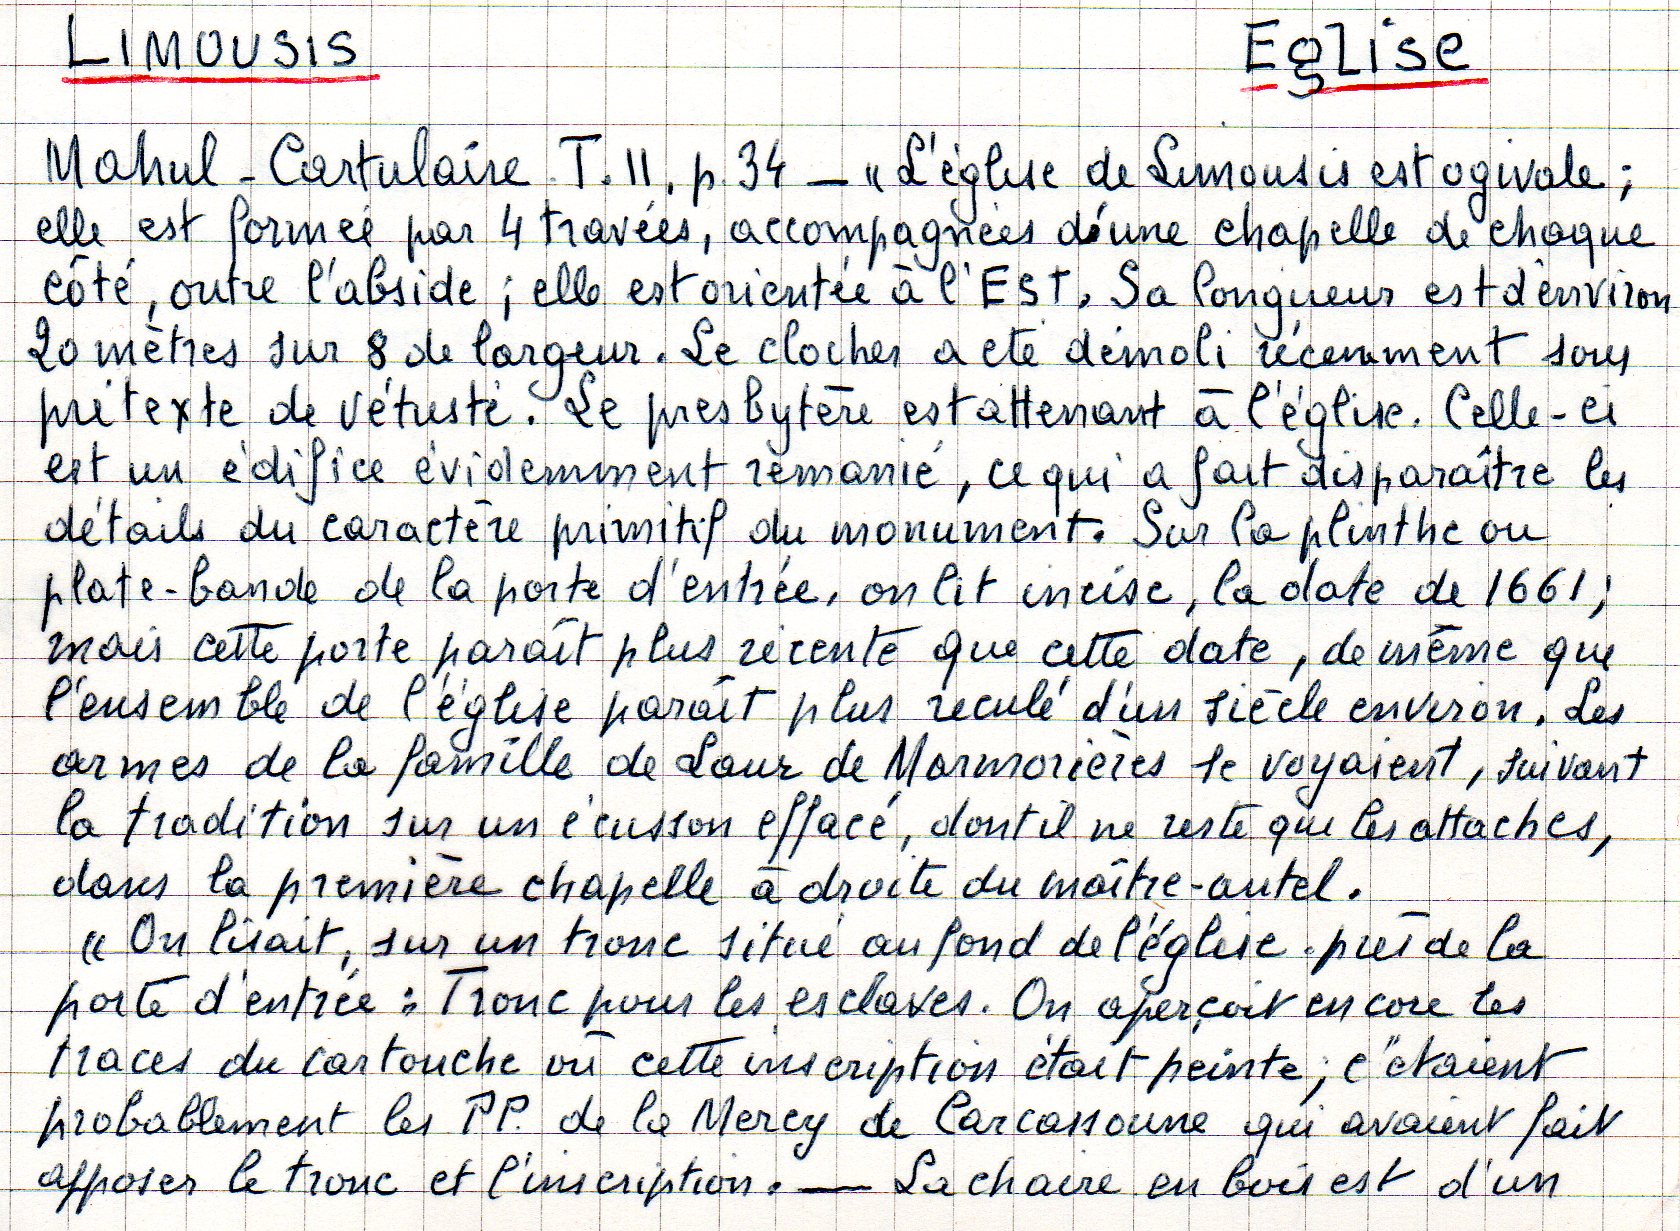 LIMOUSIS Eglise
Mahul - Cartulaire T. II, p. 34 — « L'église de Limousis est ogivale ;
elle est formée par 4 travées, accompagnées d'une chapelle de chaque
côté, outre l'abside ; elle est orientée à l'EST. Sa longueur est d'environ
20 mètres sur 8 de largeur. Le clocher a été démoli récemment sous
prétexte de vétusté. Le presbytère est attenant à l'église. Celle-ci
est un édifice évidemment remanié, ce qui a fait disparaître les
détails du caractère primitif du monument. Sur la plinthe ou
plate-bande de la porte d'entrée, on lit incise, la date de 1661 ;
mais cette porte paraît plus récente que cette date, de même que
l'ensemble de l'église paraît plus reculé d'un siècle environ. Les
armes de la famille de Saur de Marmorières se voyaient, suivant
la tradition sur un écusson effacé, dont il ne reste que les attaches,
dans la première chapelle à droite du maître-autel.
« On lisait, sur un tronc situé au fond de l'église près de la
porte d'entrée : Tronc pour les esclaves. On aperçoit encore les
traces du cartouche où cette inscription était peinte ; c'étaient
probablement les PP. de la Mercy de Carcassonne qui avaient fait
apposer le tronc et l'inscription. — La chaire en bois est d'un